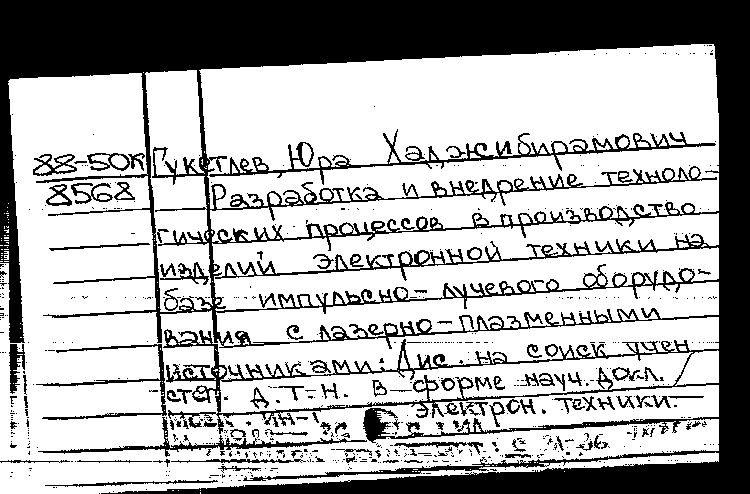 88-50к Гукетлев, Юра Хаджибирамович
8568 Разработка и внедрение техноло-
гических процессов в производство
изделий электронной техники на
базе импульсно-лучевого оборудо-
вания с лазерно-плазменными
источниками: Дис. на соиск учен
степ. д.т.н. в форме науч. докл. /
Моск. ин-т электрон. техники.